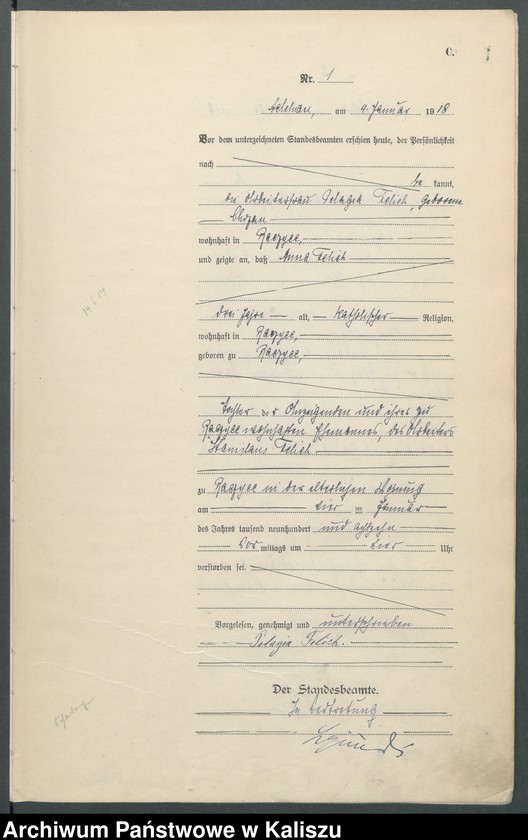 C. 1
Nr. 1
am 9. Januar 1918
Vor dem unterzeichneten Standesbeamten erschien heute, der Persönlichkeit
nach
be kannt,
die Arbeiterfrau Pelagia Felich, geborene
wohnhaft in
und zeigte an, daß Anna Felich
drei Jahre alt, katholischer Religion,
wohnhaft in
geboren zu
Tochter der Anzeigenden und ihres zu
wohnhaften Ehemannes, des Arbeiters
Stanislaus Felich
zu in der elterlichen Wohnung
am vier ten Januar
des Jahres tausend neunhundert und achtzehn
Vor mittags um vier Uhr
verstorben sei.
Vorgelesen, genehmigt und unterschrieben
Pelagia Felich.
Der Standesbeamte.
In Vertretung
Archiwum Państwowe w Kaliszu